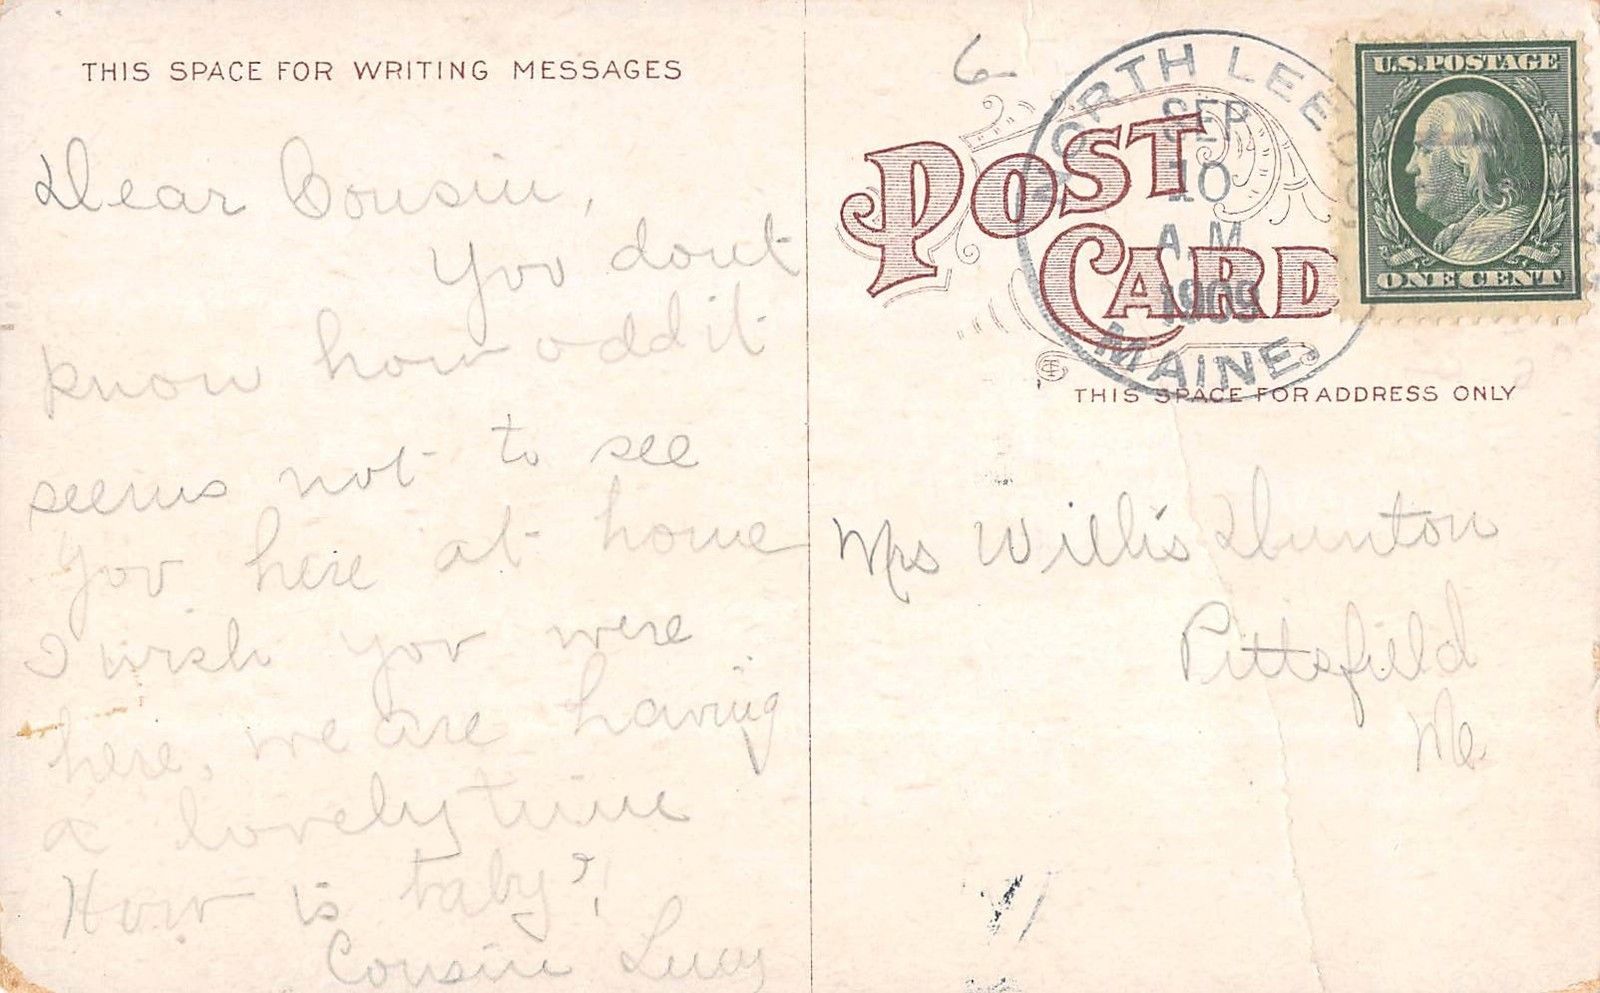 THIS SPACE FOR WRITING MESSAGES
Dear Cousin,
You dont
know how odd it
seems not to see
you here at home
I wish you were
here, we are having
a lovely time
How is baby?
Cousin Lucy
6
NORTH LEE
SEP
10
A.M.
1909
MAINE.
POST
CARD
U.S.POSTAGE
ONE CENT
THIS SPACE FOR ADDRESS ONLY
Mrs Willis Dunton
Pittsfield
Me